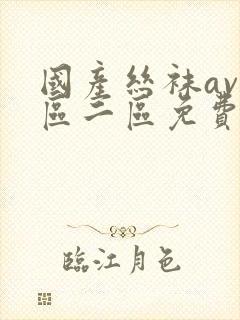 國產絲袜av
區二區免費
臨江月色